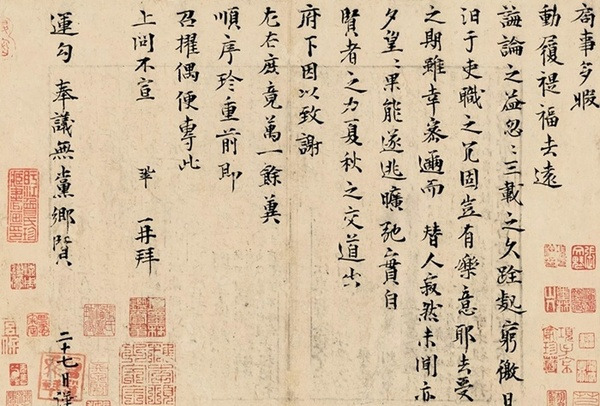 局事多暇
動履禔福去遠
誨論之益忽〻三載之久跧處窮徼日
汩于吏職之冗固豈有樂意耶去受
之期雖幸密邇而替人寂然未聞亦
夕望〻果能遂逃曠弛實自
賢者之力夏秋之交道出
府下因以致謝
左右庶竟萬一餘冀
順序珍重前即
召擢偶便專此
上問不宣 鞏 再拜
運勾 奉議無黨鄉賢 二十七日謹